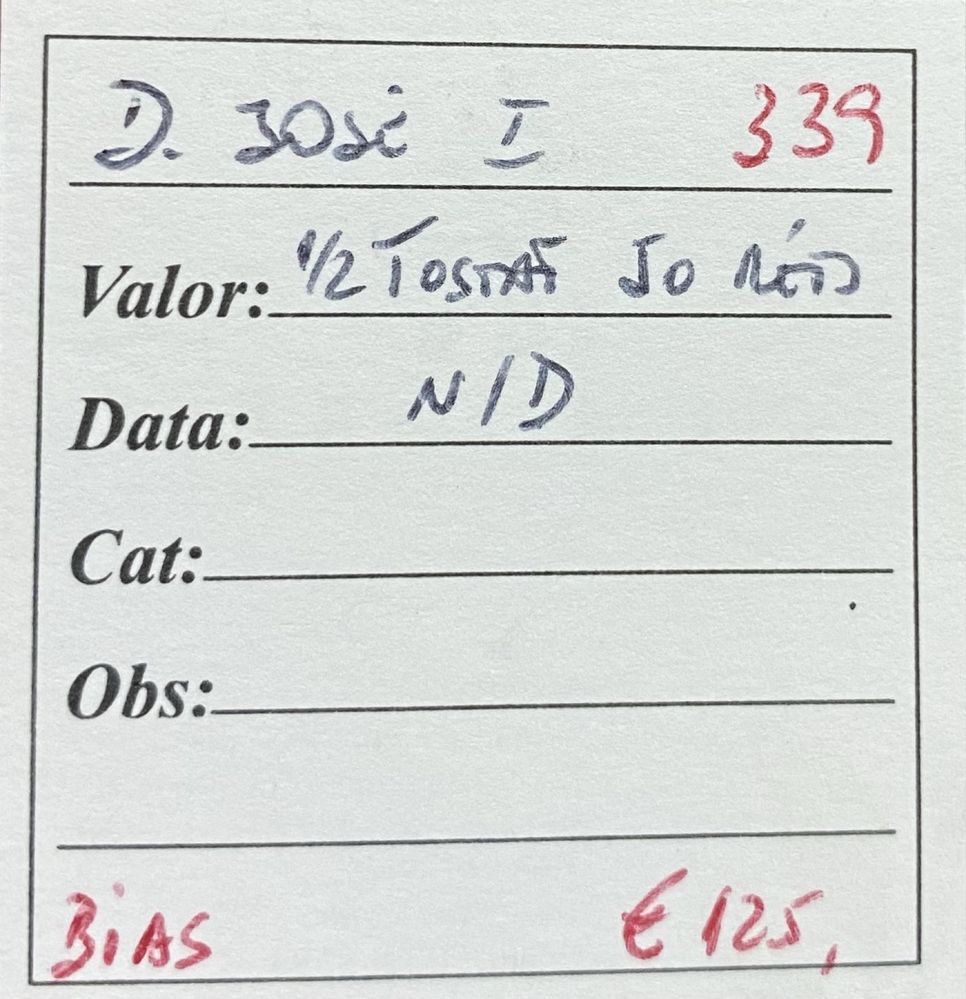 D. José I 339
Valor: 1/2 Tostão 50 Réis
Data: N/D
Cat:
Obs:
BiAS € 125,